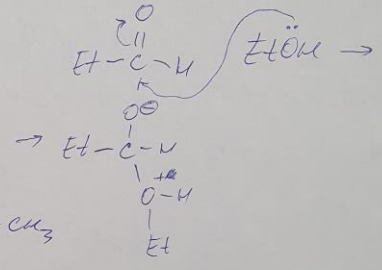 O
||
Et-C-H EtÖH →
O⊖
|
→ Et-C-H
\
+
O-H
|
CH3
Et